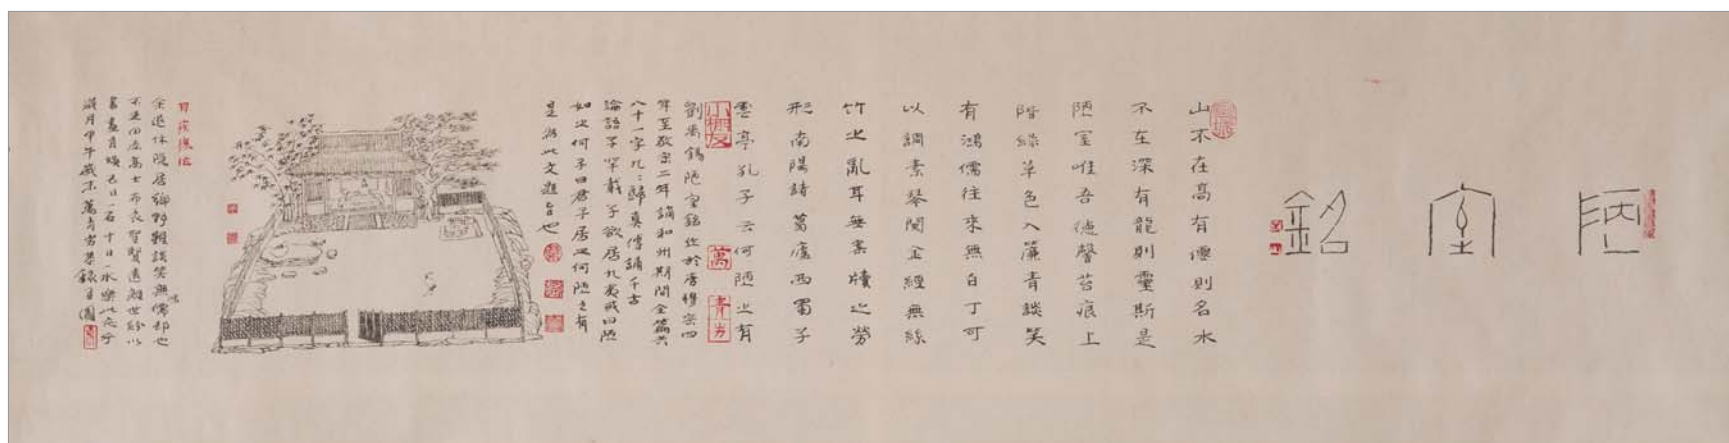 陋室銘
山不在高有僊則名水
不在深有龍則靈斯是
陋室唯吾德馨苔痕上
階綠草色入簾青談笑
有鴻儒往來無白丁可
以調素琴閱金經無絲
竹之亂耳無案牘之勞
形南陽諸葛廬西蜀子
雲亭孔子云何陋之有
萬青屴
劉禹錫陋室銘作於唐穆宗四
年至敬宗二年謫和州期間全篇共
八十一字歸真傳誦千古
論語子罕載子欲居九夷或曰陋
如之何子曰君子居之何陋之有
是為此文題旨也
余退休隱居鄉野雖談笑無鴻儒卻也
不乏田高士布衣聖賢遠離世紛以
書畫自娛五日一石十日一水樂此忘乎
歲月甲午歲末萬青屴恭錄並圖